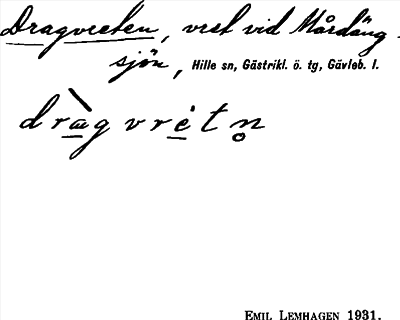 Dragvreten, vret vid Mårdäng-
sjön, Hille sn, Gästrikl. ö. tg, Gävleb. l.
dràgvrétn̥
EMIL LEMHAGEN 1931.